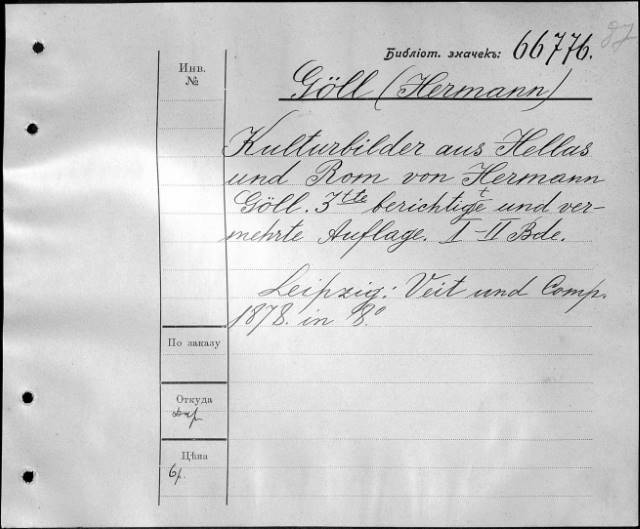 Библіот. значекъ: 66776.
Инв.
№
Göll (Hermann)
Kulturbilder aus Hellas
und Rom von Hermann
Göll. 3tte berichtigte und ver-
mehrte Auflage. I-II Bde.
Leipzig: Veit und Comp.
1878. in 8°.
По заказу
Откуда
Цѣна
6р.